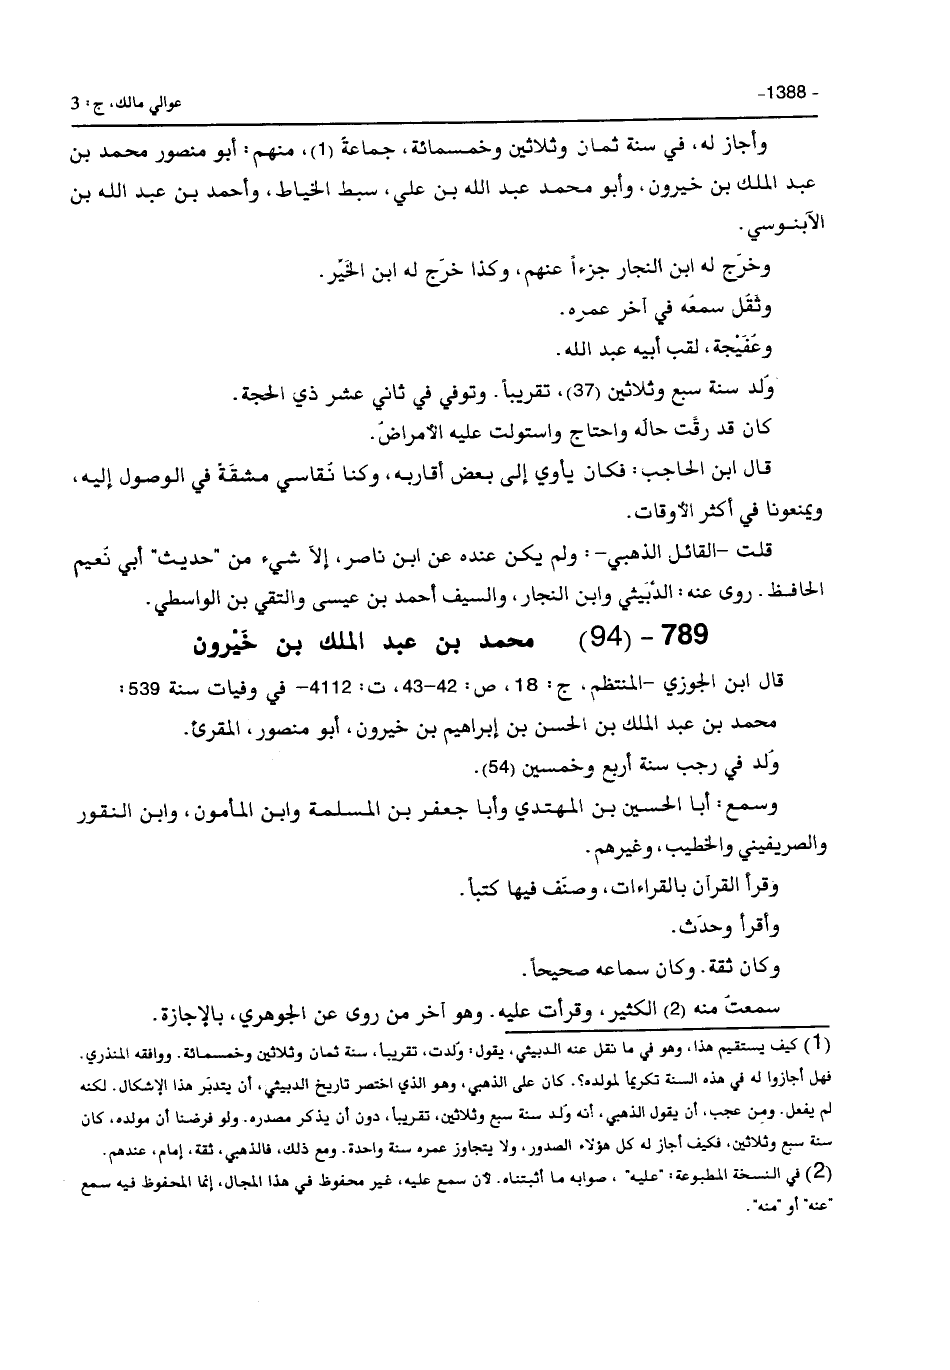 -1388-
عوالي مالك، ج: 3
وأجاز له، في سنة ثمان وثلاثين وخمسمائة، جماعةً (1)، منهم: أبو منصور محمد بن
عبد الملك بن خيرون، وأبو محمد عبد الله بن علي، سبط الخياط، وأحمد بن عبد الله بن
الآبنوسي.
وخرَّج له ابن النجار جزءاً عنهم، وكذا خرَّج له ابن الخَيِّر.
وثَقُل سمعُه في آخر عمره.
وعُفَيْجة، لقب أبيه عبد الله.
وُلد سنة سبع وثلاثين (37)، تقريباً. وتوفي في ثاني عشر ذي الحجة.
كان قد رقَّت حالُه واحتاج واستولت عليه الأمراضُ.
قال ابن الحاجب: فكان يأوي إلى بعض أقاربه، وكنا نُقاسي مشقةً في الوصول إليه،
ويمنعونا في أكثر الأوقات.
قلت -القائل الذهبي-: ولم يكن عنده عن ابن ناصر، إلاّ شيء من "حديث" أبي نُعيم
الحافظ. روى عنه: الدُّبَيثي وابن النجار، والسيف أحمد بن عيسى والتقي بن الواسطي.
789 - (94) محمد بن عبد الملك بن خَيْرون
قال ابن الجوزي -المنتظم، ج: 18، ص: 42-43، ت: 4112- في وفيات سنة 539:
محمد بن عبد الملك بن الحسن بن إبراهيم بن خيرون، أبو منصور، المقرئ.
وُلد في رجب سنة أربع وخمسين (54).
وسمع: أبا الحسين بن المهتدي وأبا جعفر بن المسلمة وابن المأمون، وابن النقور
والصريفيني والخطيب، وغيرهم.
وقرأ القرآن بالقراءات، وصنَّف فيها كتباً.
وأقرأ وحدَّث.
وكان ثقة. وكان سماعه صحيحاً.
سمعتُ منه (2) الكثير، وقرأت عليه. وهو آخر من روى عن الجوهري، بالإجازة.
(1) كيف يستقيم هذا، وهو في ما نقل عنه الدبيثي، يقول: وُلدت، تقريباً، سنة ثمان وثلاثين وخمسمائة. ووافقه المنذري.
فهل أجازوا له في هذه السنة تكريماً لمولده؟. كان على الذهبي، وهو الذي اختصر تاريخ الدبيثي، أن يتدبَّر هذا الإشكال. لكنه
لم يفعل. ومن عجب، أن يقول الذهبي، أنه وُلد سنة سبع وثلاثين، تقريباً، دون أن يذكر مصدره. ولو فرضنا أن مولده، كان
سنة سبع وثلاثين، فكيف أجاز له كل هؤلاء الصدور، ولا يتجاوز عمره سنة واحدة. ومع ذلك، فالذهبي، ثقة، إمام، عندهم.
(2) في النسخة المطبوعة: "عليه"، صوابه ما أثبتناه. لأن سمع عليه، غير محفوظ في هذا المجال، إنما المحفوظ فيه سمع
"عنه" أو "منه".